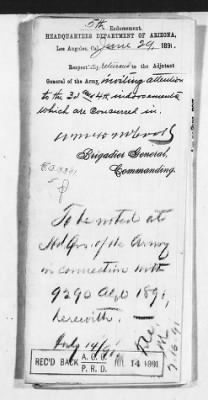 5th Endorsement.
HEADQUARTERS DEPARTMENT OF ARIZONA,
Los Angeles, Cal., June 29, 1891.
Respectfully returned to the Adjutant
General of the Army, inviting attention
to the 3d and 4th indorsements
which are concurred in.
Brigadier General,
Commanding.
To be noted at
Hd Qrs. of the Army
in connection with
9290 AGO 1891,
herewith.
July 14/91
REC'D BACK A. G. O. JUL 14 1891
P. R. D.
7.16.91